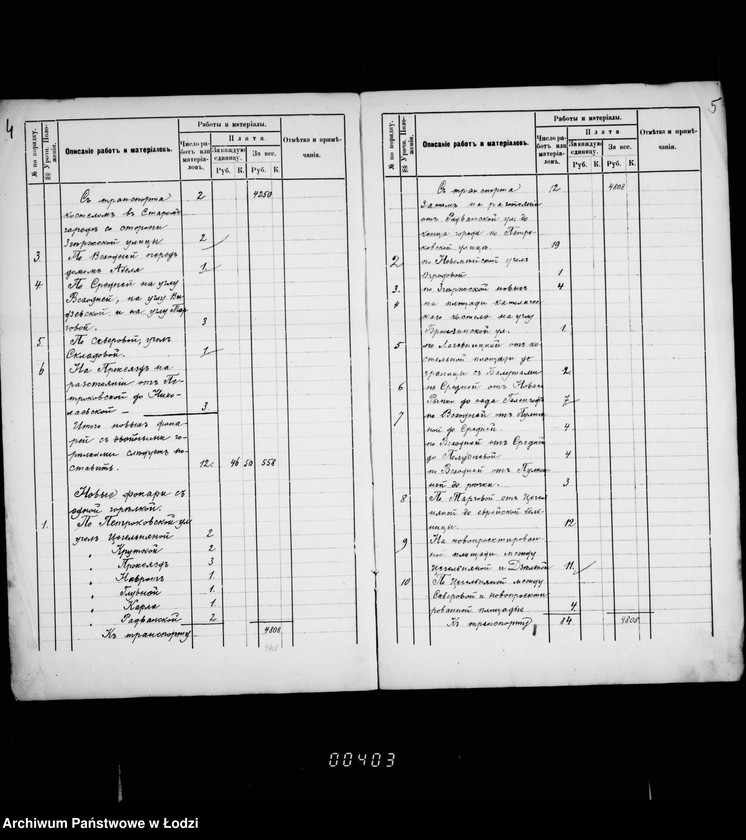 4
№ по порядку.
§§ Урочн. Поло-
женія.
Описаніе работъ и матеріаловъ.
Работы и матеріалы.
Число ра-
ботъ или
матеріа-
ловъ.
Плата
За каждую
единицу.
За все.
Руб. К. Руб. К.
Отмѣтка и примѣ-
чанія.
Съ транспорта 2 4250
костеломъ въ Старомъ
городѣ со стороны
Згержской улицы 2
3. По Всходной огородъ
домомъ 1.
4. По Средней на углу
Всходней, на углу Ви-
дзевской и на углу Тар-
говой. 3
5. По Скверовой, уголъ
Складовой. 1
6 На Проѣздъ на
разстояніи отъ Пе-
троковской до Нико-
лаевской — 3
Итого новыхъ фона-
рей съ двойными го-
рѣлками слѣдуетъ по-
ставить. 12. 46 50 558
Новые фонари съ
одной горѣлкой.
1. По Петроковской ул
уголъ Цегельняной 2
" Круткой 2
" Проѣздъ 3
" Навротъ 1.
" Главной 1.
" Карла 1.
" Радванской 2
Къ транспорту 4808
4808
5
№ по порядку.
§§ Урочн. Поло-
женія.
Описаніе работъ и матеріаловъ.
Работы и матеріалы.
Число ра-
ботъ или
матеріа-
ловъ.
Плата
За каждую
единицу.
За все.
Руб. К. Руб. К.
Отмѣтка и примѣ-
чанія.
Съ транспорта 12 4808
Затѣмъ на разстояніи
отъ Радванской ул. до
конца города по Петро-
ковской улицы. 19
2 по Новомѣйской уголъ
Огродовой 1
3. по Згержской новыхъ 4
4 на площади католичес-
каго костела на углу
Бржезинской ул. 1.
5 по Лагевницкой отъ ко-
стельной площади до
границы съ Балутами 2.
6 по Средней отъ Новаго
Рынка до сада 7
7 по Всходной отъ Пулноч-
ной до Средней. 4
по Всходной отъ Средней
до Полудневой 4
по Всходной отъ Пулноч-
ной до рѣчки. 3
8 По Тарговой отъ Цегель-
няной до еврейской боль-
ницы. 12
9 На новопроектирован-
ной площади между
Цегельняной и Дзельной 11.
10 По Цегельняной между
Скверовой и новопроекти-
рованной площадью 4
Къ транспорту 84 4808
00403
Archiwum Państwowe w Łodzi